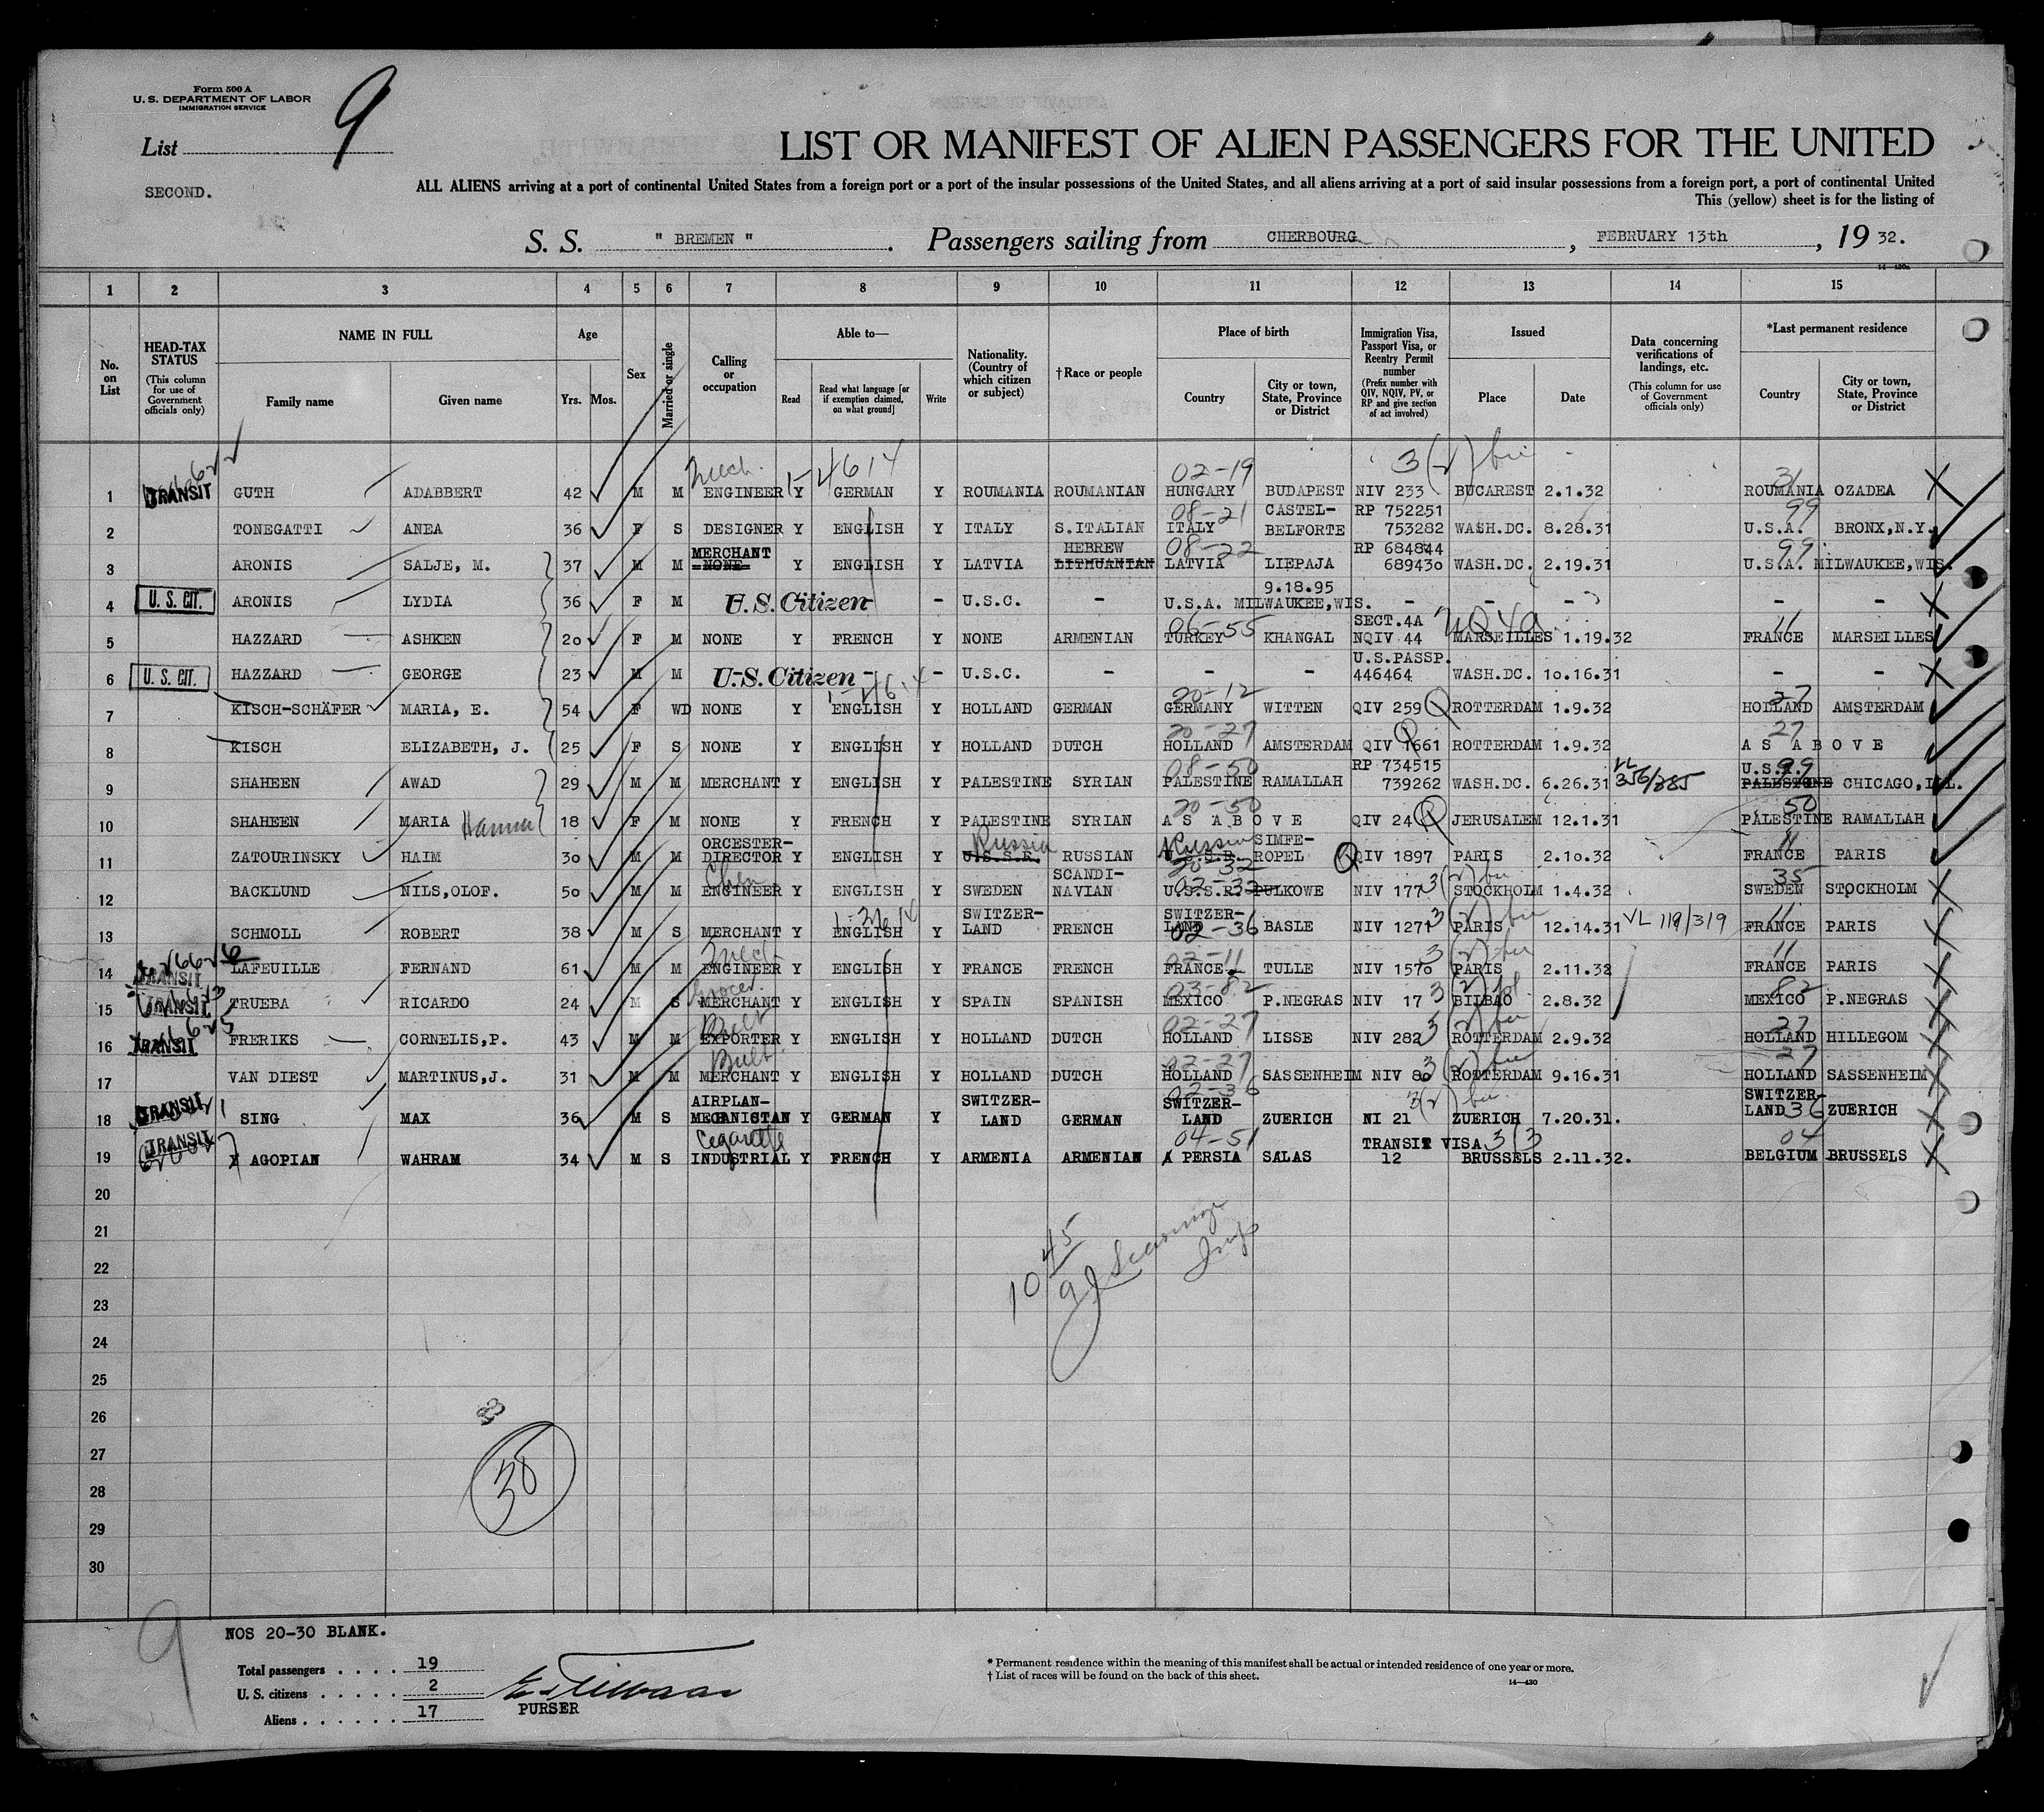 Form 500 A
U. S. DEPARTMENT OF LABOR
IMMIGRATION SERVICE
List 9
SECOND.
LIST OR MANIFEST OF ALIEN PASSENGERS FOR THE UNITED
ALL ALIENS arriving at a port of continental United States from a foreign port or a port of the insular possessions of the United States, and all aliens arriving at a port of said insular possessions from a foreign port, a port of continental United
This (yellow) sheet is for the listing of
S. S. " BREMEN " . Passengers sailing from CHERBOURG , FEBRUARY 13th , 19 32.
1 2 3 4 5 6 7 8 9 10 11 12 13 14 15
No. on List
HEAD-TAX STATUS (This column for use of Government officials only)
NAME IN FULL Family name Given name
Age Yrs. Mos.
Sex
Married or single
Calling or occupation
Able to— Read Read what language [or if exemption claimed, on what ground] Write
Nationality. (Country of which citizen or subject)
† Race or people
Place of birth Country City or town, State, Province or District
Immigration Visa, Passport Visa, or Reentry Permit number (Prefix number with QIV, NQIV, PV, or RP and give section of act involved)
Issued Place Date
Data concerning verifications of landings, etc. (This column for use of Government officials only)
*Last permanent residence Country City or town, State, Province or District
1 TRANSIT GUTH ADABBERT 42 M M Mech. ENGINEER Y GERMAN Y ROUMANIA ROUMANIAN 02-19 HUNGARY BUDAPEST NIV 233 BUCAREST 2.1.32 31 ROUMANIA OZADEA
2 TONEGATTI ANEA 36 F S DESIGNER Y ENGLISH Y ITALY S.ITALIAN 08-21 ITALY CASTEL-BELFORTE RP 752251 753282 WASH.DC. 8.28.31 99 U.S.A. BRONX,N.Y.
3 ARONIS SALJE, M. 37 M M MERCHANT NONE Y ENGLISH Y LATVIA HEBREW LITHUANIAN 08-22 LATVIA LIEPAJA RP 684844 689430 WASH.DC. 2.19.31 99 U.S.A. MILWAUKEE,WIS.
4 U. S. CIT. ARONIS LYDIA 36 F M U.S. Citizen - U.S.C. - U.S.A. 9.18.95 MILWAUKEE,WIS. - - - - -
5 HAZZARD ASHKEN 20 F M NONE Y FRENCH Y NONE ARMENIAN 06-55 TURKEY KHANGAL SECT.4A NQIV 44 NQ4a MARSEILLES 1.19.32 11 FRANCE MARSEILLES
6 U. S. CIT. HAZZARD GEORGE 23 M M U.S. Citizen - U.S.C. - - - U.S.PASSP. 446464 WASH.DC. 10.16.31 - -
7 KISCH-SCHÄFER MARIA, E. 54 F WD NONE Y ENGLISH Y HOLLAND GERMAN 20-12 GERMANY WITTEN QIV 259 Q ROTTERDAM 1.9.32 27 HOLLAND AMSTERDAM
8 KISCH ELIZABETH, J. 25 F S NONE Y ENGLISH Y HOLLAND DUTCH 20-27 HOLLAND AMSTERDAM QIV 1661 Q ROTTERDAM 1.9.32 27 AS ABOVE
9 SHAHEEN AWAD 29 M M MERCHANT Y ENGLISH Y PALESTINE SYRIAN 08-50 PALESTINE RAMALLAH RP 734515 739262 WASH.DC. 6.26.31 VL 356/385 U.S.A. 99 PALESTINE CHICAGO,ILL.
10 SHAHEEN MARIA Hanna 18 F M NONE Y FRENCH Y PALESTINE SYRIAN 20-50 AS ABOVE QIV 24 Q JERUSALEM 12.1.31 50 PALESTINE RAMALLAH
11 ZATOURINSKY HAIM 30 M M ORCESTER-DIRECTOR Y ENGLISH Y Russia U.S.S.R. RUSSIAN Russia U.S.S.R. SIMFE-ROPEL QIV 1897 PARIS 2.10.32 11 FRANCE PARIS
12 BACKLUND NILS,OLOF. 50 M M Chem ENGINEER Y ENGLISH Y SWEDEN SCANDI-NAVIAN 20-32 02-32 U.S.S.R. PULKOWE NIV 177 STOCKHOLM 1.4.32 35 SWEDEN STOCKHOLM
13 SCHMOLL ROBERT 38 M S MERCHANT Y ENGLISH Y SWITZER-LAND FRENCH SWITZER-LAND 02-36 BASLE NIV 1271 PARIS 12.14.31 VL 119/319 11 FRANCE PARIS
14 TRANSIT LAFEUILLE FERNAND 61 M M Mech ENGINEER Y ENGLISH Y FRANCE FRENCH 02-11 FRANCE TULLE NIV 1570 PARIS 2.11.32 11 FRANCE PARIS
15 TRANSIT TRUEBA RICARDO 24 M S Grocer MERCHANT Y ENGLISH Y SPAIN SPANISH 03-82 MEXICO P.NEGRAS NIV 17 BILBAO 2.8.32 82 MEXICO P.NEGRAS
16 TRANSIT FRERIKS CORNELIS,P. 43 M M Bulb EXPORTER Y ENGLISH Y HOLLAND DUTCH 02-27 HOLLAND LISSE NIV 282 ROTTERDAM 2.9.32 27 HOLLAND HILLEGOM
17 VAN DIEST MARTINUS,J. 31 M M Bulb MERCHANT Y ENGLISH Y HOLLAND DUTCH 02-27 HOLLAND SASSENHEIM NIV 80 ROTTERDAM 9.16.31 27 HOLLAND SASSENHEIM
18 TRANSIT SING MAX 36 M S AIRPLAN-MECANISTAN Y GERMAN Y SWITZER-LAND GERMAN 02-36 SWITZER-LAND ZUERICH NI 21 ZUERICH 7.20.31. SWITZER-LAND 36 ZUERICH
19 TRANSIT X AGOPIAN WAHRAM 34 M S Cegarette INDUSTRIAL Y FRENCH Y ARMENIA ARMENIAN 04-51 PERSIA SALAS TRANSIT VISA 12 3(3 BRUSSELS 2.11.32. 04 BELGIUM BRUSSELS
20
21
22
23
24
25
26
27
28
29
30
10 45
9
NOS 20-30 BLANK.
Total passengers . . . . 19
U. S. citizens . . . . . 2
Aliens . . . . . . 17
PURSER
* Permanent residence within the meaning of this manifest shall be actual or intended residence of one year or more.
† List of races will be found on the back of this sheet.
14—430